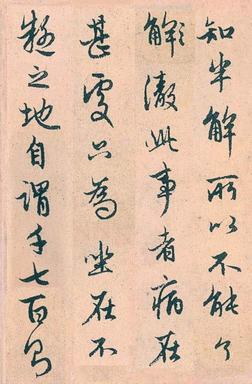 知半解所以不能了
解澈此事者病在
甚處只為坐在不
疑之地自謂千七百則